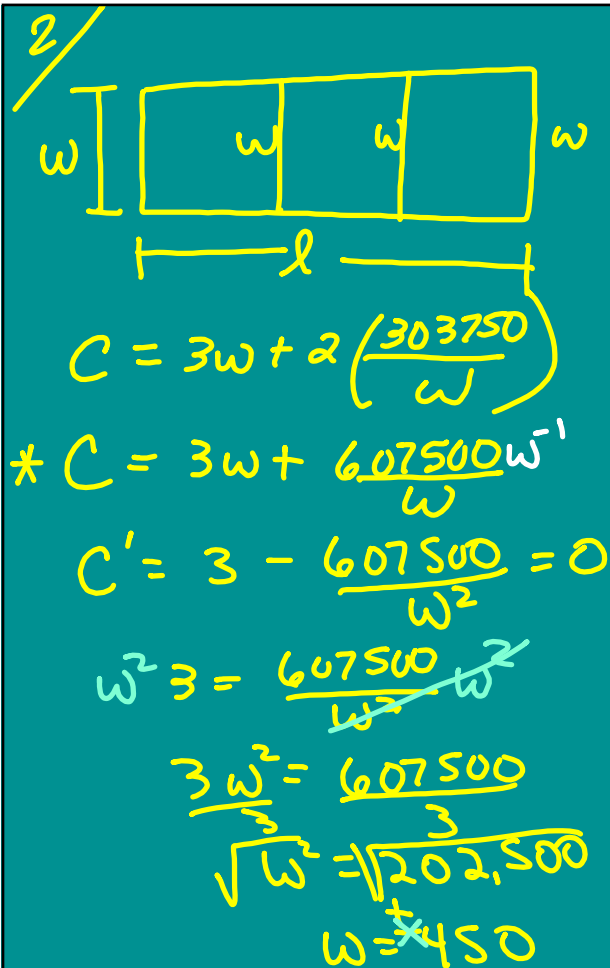 2/
w w w w
l
C = 3w + 2(303750/w)
* C = 3w + 607500/w w⁻¹
C' = 3 - 607500/w² = 0
w² 3 = 607500/w² w²
3w²/3 = 607500/3
√w² = √202,500
w = ± 450